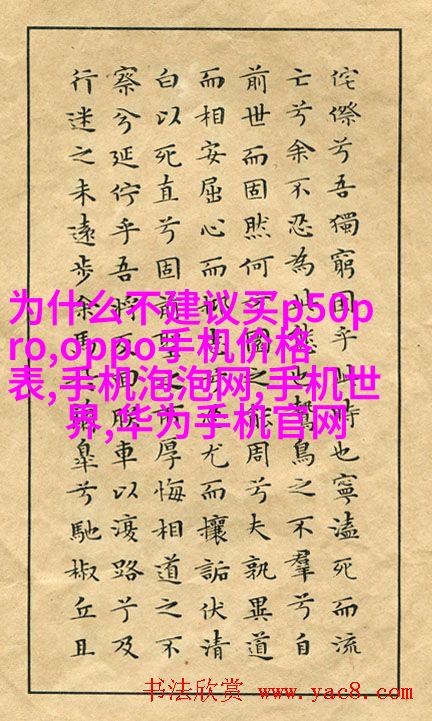 侘傺兮吾獨窮困乎此時也寧溘死而流
亡兮余不忍為此態也鷙鳥之不羣兮自
前世而固然何方圜之能周兮夫孰異道
而相安屈心而抑尤而攘詬伏清
白以死直兮固前聖之所厚悔相道之不
察兮延佇乎吾將反回朕車以復路兮及
行迷之未遠步余馬皐兮馳椒丘且
为什么不建议买p50p
ro,oppo手机价格
表,手机泡泡网,手机世
界,华为手机官网
书法欣赏 www.yac8.com